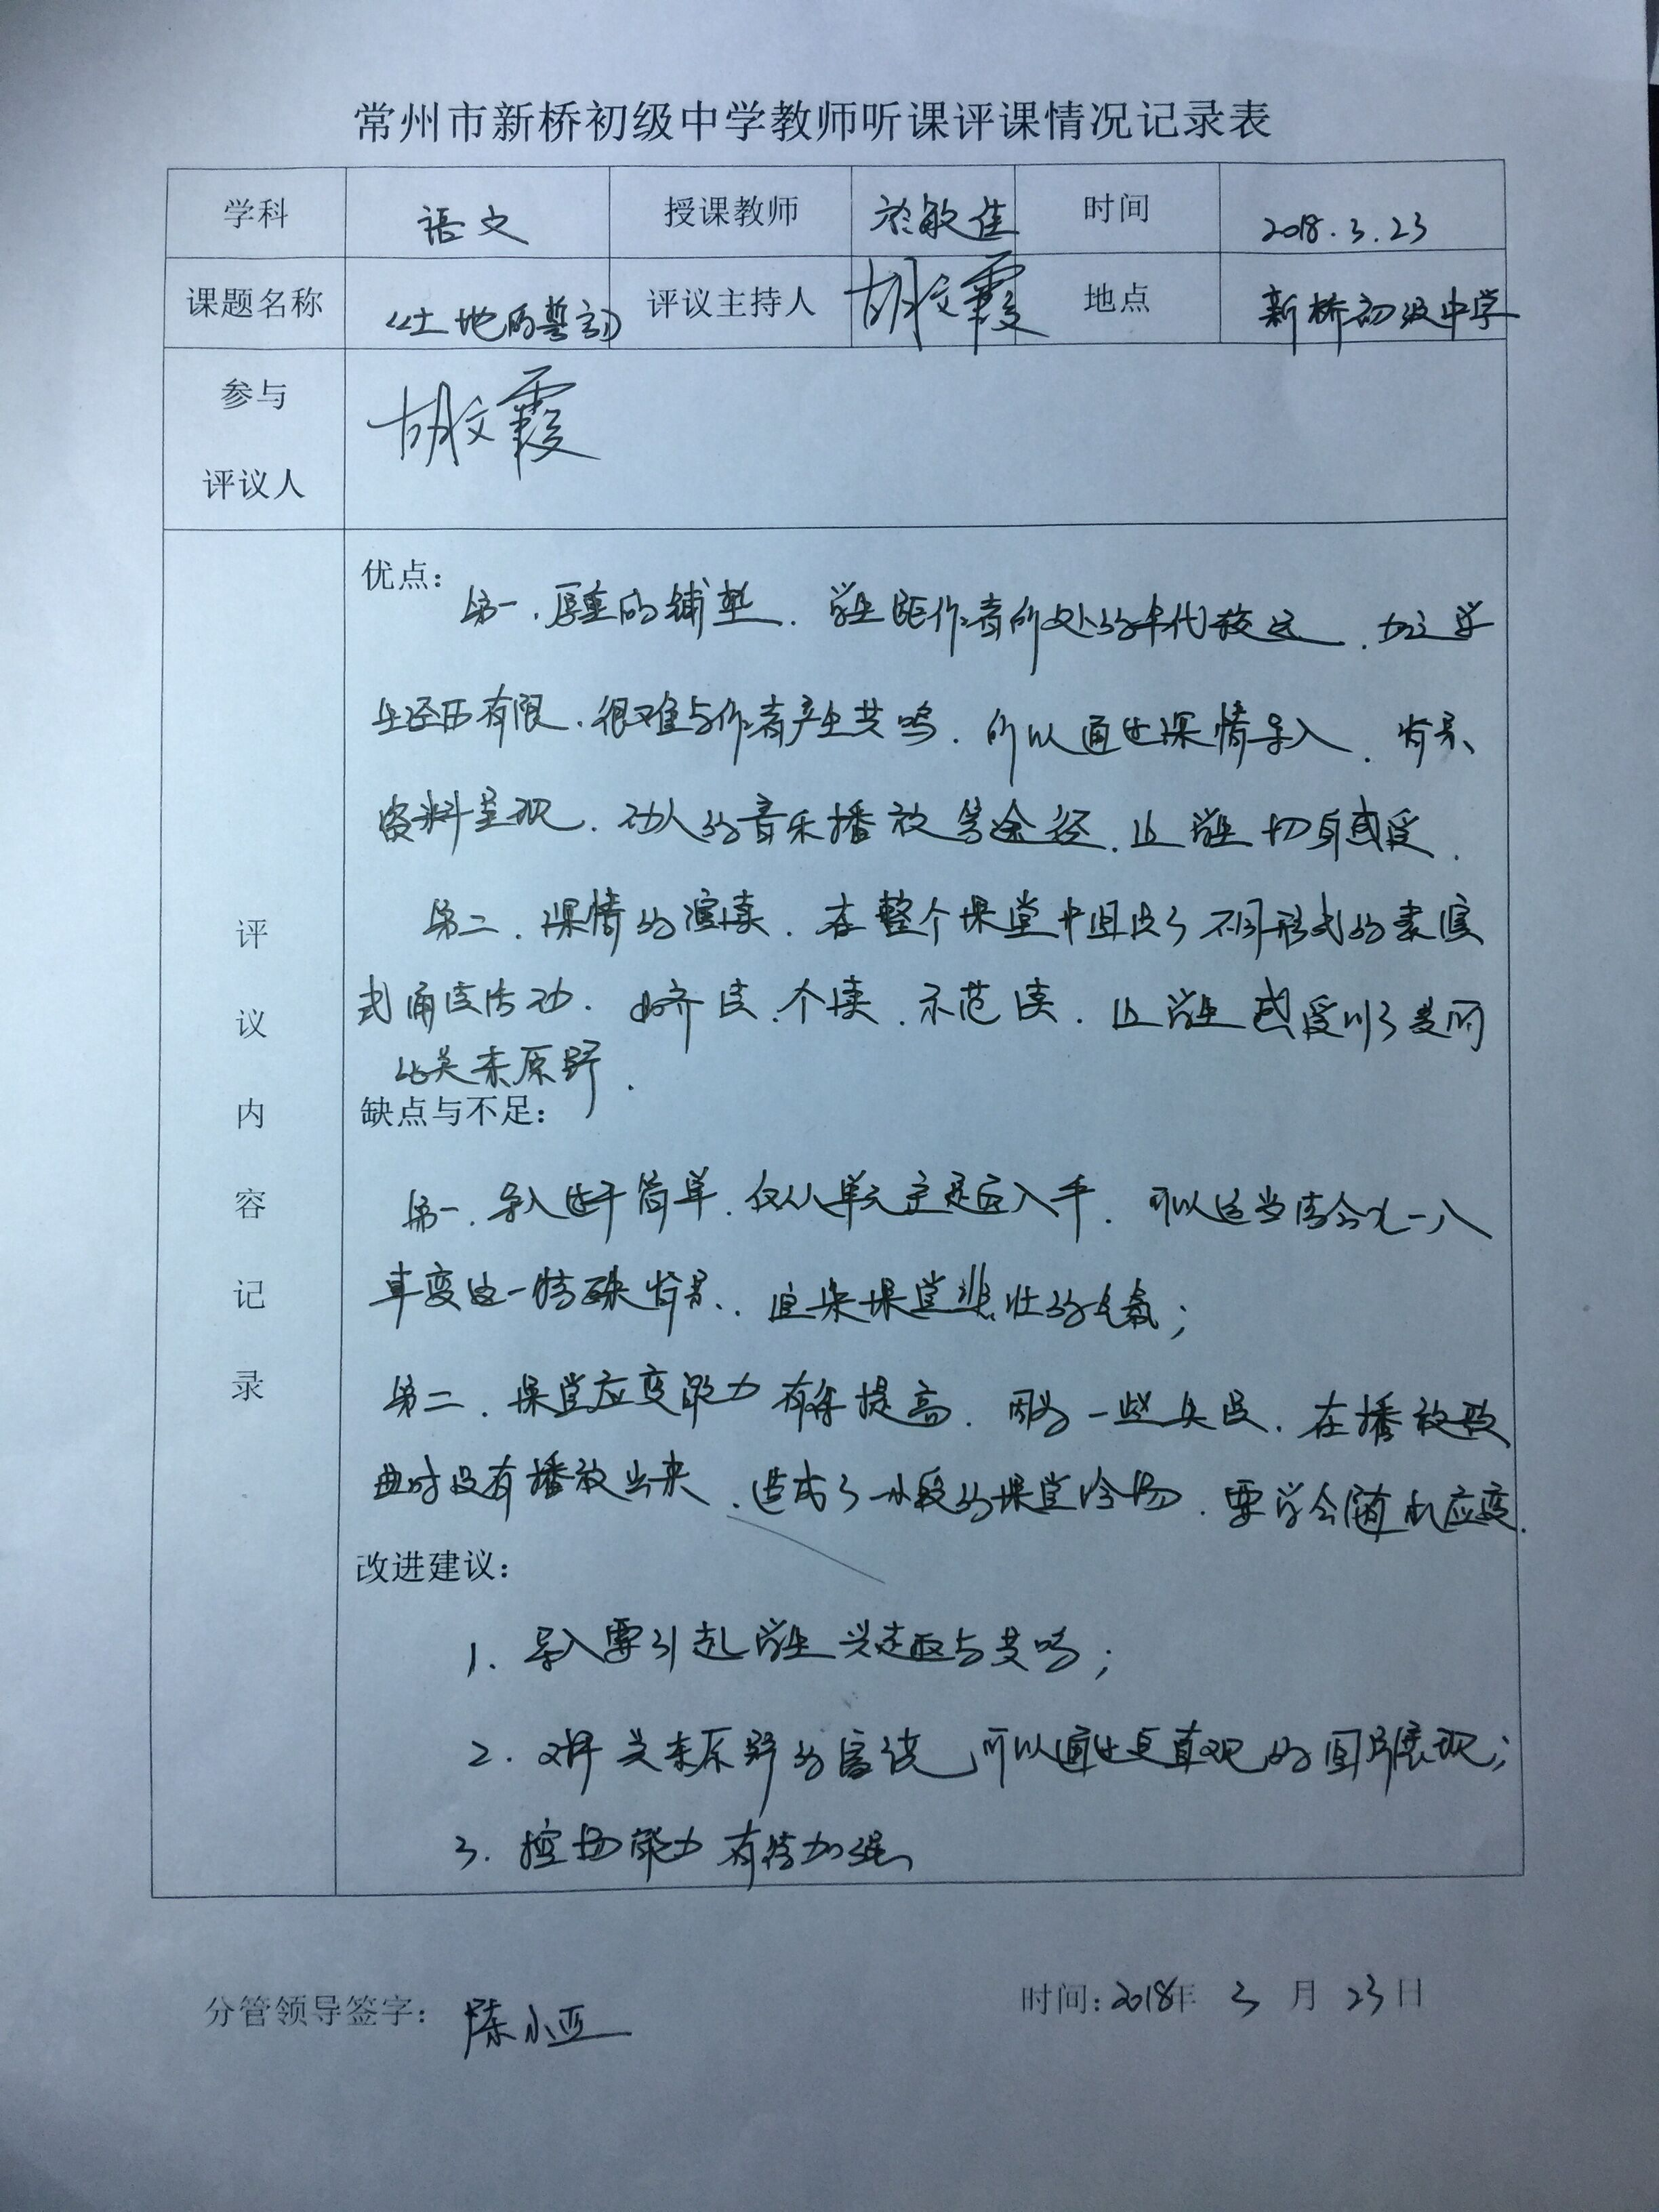 常州市新桥初级中学教师听课评课情况记录表
学科 语文 授课教师 於敏佳 时间 2018.3.23
课题名称 《土地的誓言》 评议主持人 胡文霞 地点 新桥初级中学
参与
评议人
胡文霞
评议内容记录
优点：
第一、厚重的铺垫。学生距作者所处的年代较远，加之学
生经历有限，很难与作者产生共鸣，所以通过深情导入、背景
资料呈现、动人的音乐播放等途径，让学生切身感受。
第二、深情的演读。在整个课堂中且设了不同形式的表演
式诵读活动，如齐读、个读、示范读，让学生感受到了美丽
的关东原野。
缺点与不足：
第一、导入过于简单，仅从单元主题入手，可以适当结合九一八
事变这一特殊背景，渲染课堂悲壮的气氛；
第二、课堂应变能力有待提高，因为一些失误，在播放歌
曲时没有播放出来，造成了小段的课堂冷场，要学会随机应变。
改进建议：
1. 导入要引起学生兴趣与共鸣；
2. 对于关东原野的富饶，可以通过更直观的图片展现；
3. 控场能力有待加强
分管领导签字： 陈小亚
时间：2018年 3 月 23日